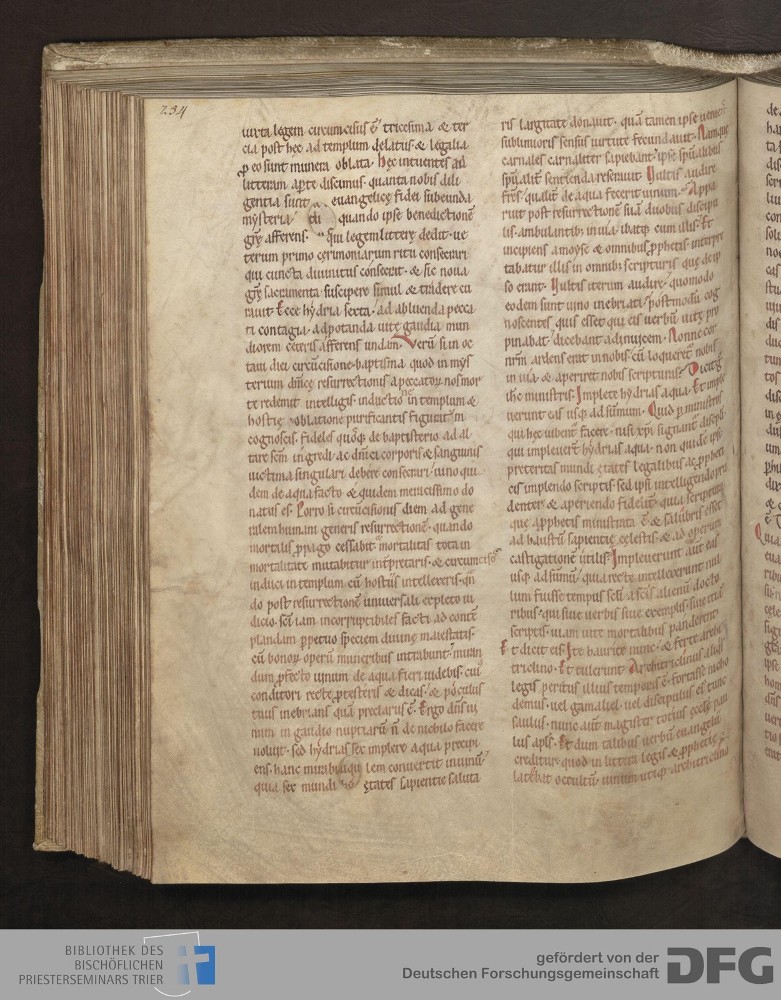 234
iuxta legem circumcisus ē tricesima & ter
cia post hęc ad templum delatus & legalia
ꝓ eo sunt munera oblata. Hęc intuentes ad
litteram aꝑte discimus. quanta nobis dili
gentia sunt euangelicę fidei subeunda
mẏsteria. cū quando ipse benedictionē
grę afferens. qui legem litterę dedit. ue
terum primo cęrimoniarum ritu consecrari
qui cuncta diuinitus consecrat. & sic noua
grę sacramenta suscipere simul & tradere cu
rauit. Ecce hẏdria sexta. ad abluenda pecca
ti contagia. ad potanda uitę gaudia mun
diorem cęteris afferens undam. Verū si in oc
taui diei circūcisione baptisma quod in mẏs
terium dn̄icę resurrectionis a peccatoꝝ nos mor
te redemit intelligis. inductionē in templum &
hostię oblatione purificantis figuratū
cognoscis. fideles quoq; de baptisterio ad al
tare scm̄ ingredi. ac dn̄ici corporis & sanguinis
uictima singulari debere consecrari. uino qui
dem de aqua facto. & quidem meracissimo do
natus es. Porro si circūcisionis diem ad gene
ralem humani generis resurrectionē. quando
mortalis ꝓpago cessabit. mortalitas tota in
mortalitatē mutabitur int̄pretaris. & circumcisos
induci in templum cū hostiis intellexeris. qn̄
do post resurrectionē uniuersali expleto iu
dicio. sc̄i iam incorruptibiles facti ad contē
plandam ꝑpetuo speciem diuinę maiestatis.
cū bonoꝝ operū muneribus intrabunt. miran
dum ꝓfecto uinum de aqua fieri uidebis. cui
conditori recte ꝓtesteris & dicas. & poculus
tuus inebrians quā preclarus ē. Ergo dn̄s in
num in gaudio nuptiarū n̄ de nichilo facere
noluit. sed hẏdrias sex implere aqua precipi
ens. hanc mirabiliter in uinū.
quia sex mundi ętates sapientię saluta
ris largitate donauit. quā tamen ipse ueniens
sublimioris sensus uirtute fecundauit. Namque
carnales carnaliter sapiebant. ipse spūalibus
spūalit̄ sentienda reserauit. Vultis audire
frēs qualit̄ de aqua fecerit uinum. Appa
ruit post resurrectionē suā duobus discipu
lis ambulantib; in uia. ibatq; cum illis. Et
incipiens a moẏse & omnibus ꝓphetis interpre
tabatur illis in omnib; scripturis quę de ip
so erant. Vultis iterum audire. quomodo
eodem sunt uino inebriati. postmodū cog
noscentes quis esset qui eis uerbū uitę pro
pinabat. dicebant adinuicem. Nonne cor
nr̄m ardens erat in nobis cū loqueretur nobis
in uia. & aperiret nobis scripturas. Dicit eis
ihc ministris. Implete hẏdrias aqua. Et imple
uerunt eas usq; ad summum. Quid ꝑ ministros
qui hęc iubent̄ facere. nisi xp̄i signant̄ discipuli.
qui impleuerunt hẏdrias aqua. non quidē ipsi
preteritas mundi ętates legalibus ac ꝓpheti
cis implendo scriptis. sed ipsi intelligendo pru
denter & aperiendo fidelit̄. quia scriptura
que a ꝓphetis ministrata ē. & salubris esset
ad haustū sapientię cęlestis. & ad operum
castigationē utilis. Impleuerunt aut̄ eas
usq; ad summū. quia recte intellexerunt nul
lum fuisse tempus sc̄m a sc̄is alienū docto
ribus. qui siue uerbis siue exemplis. siue etiā
scriptis. uiam uitę mortalibus panderent.
Et dicit eis. Ite haurite nunc. & ferte archi
triclino. Et tulerunt. Architriclinus aliqs
legis peritus illius temporis ē. fortasse nicho
demus. uel gamaliel. uel discipulus ei tunc
saulus. nunc aut̄ magister totius ęcclę pau
lus apl̄s. Et dum talibus uerbū euangelii
creditur. quod in littera legis & ꝓphetię
latebat occultū. uinum utiq; architriclino